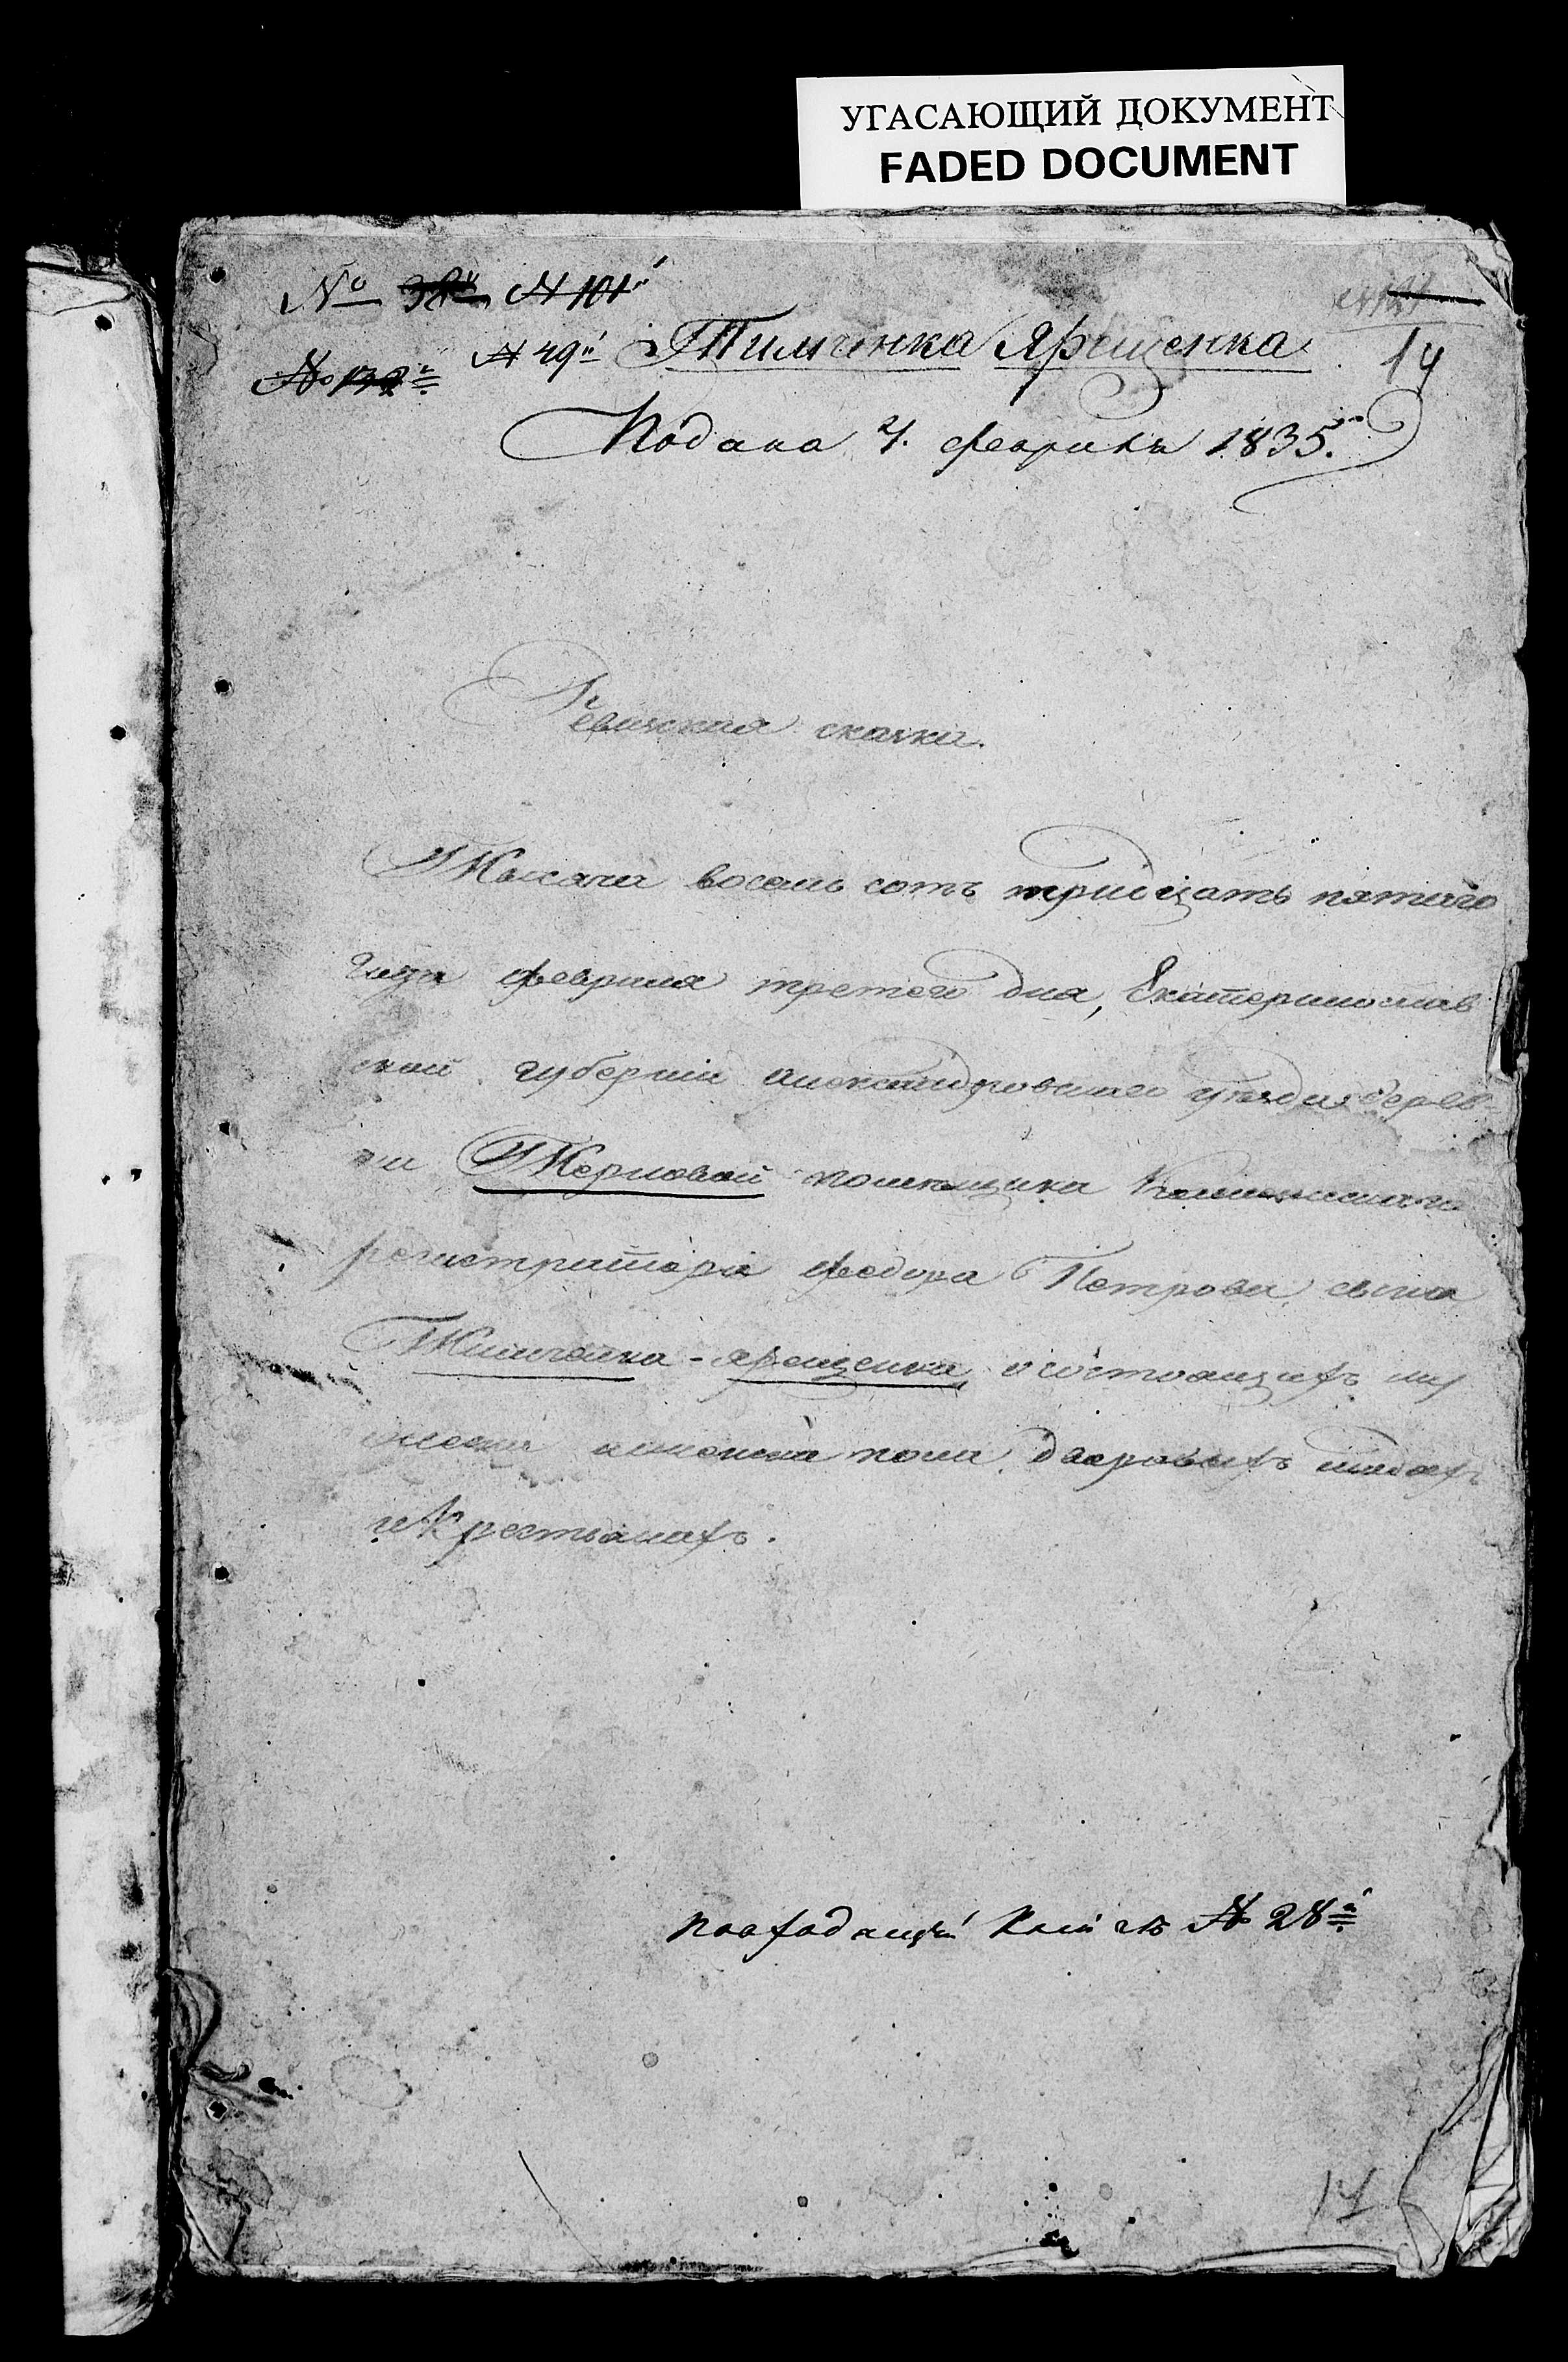 УГАСАЮЩИЙ ДОКУМЕНТ
FADED DOCUMENT
№ 38й № 101й
№ 49й Тимченка Ярещенка 14
Подана 4. февраля 1835.
Ревизская сказка.
Тысяча восемь сотъ тридцать пятаго
года февраля третего дня, Екатеринослав
ской губернии александровскаго уезда дерев-
ни Терновой помещика Коллежскаго
регистратора федора Петрова сына
Тимченка-ярещенка о состоящихъ му
жеска и женска пола дворовыхъ людях
и Крестьянахъ.
по входящей Книгѣ № 28й
14